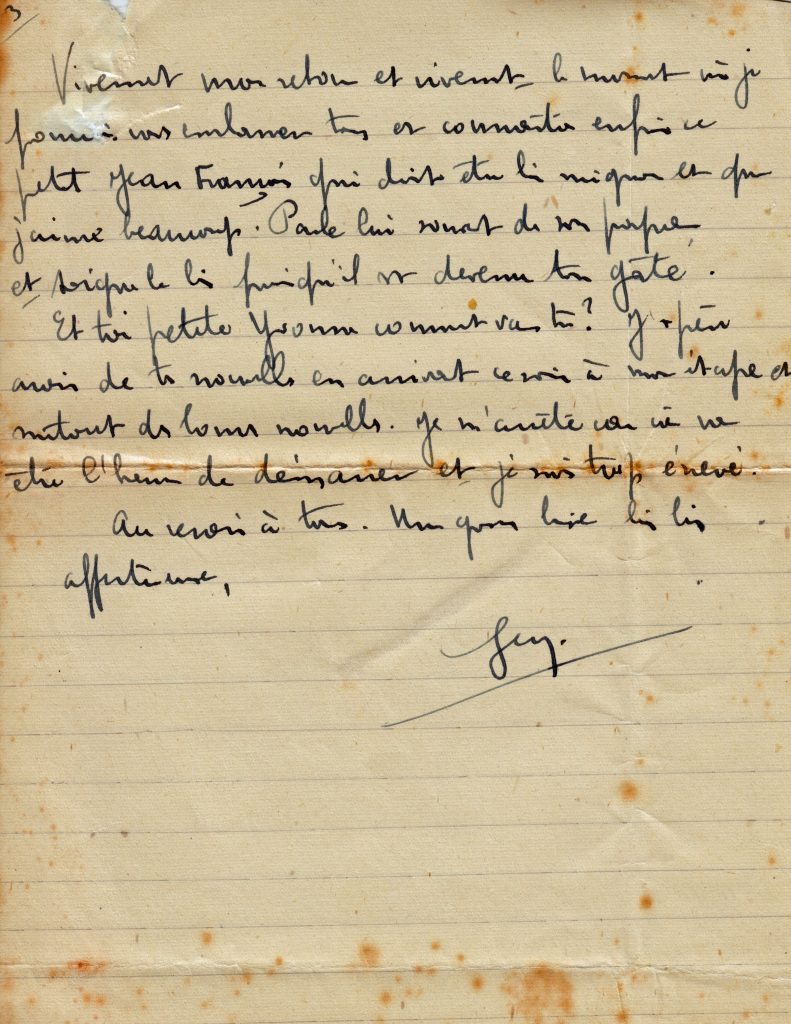 3
Vivement mon retour et vivement le moment où je
pourrai vous embrasser tous et connaître enfin ce
petit Jean François qui doit être si mignon et que
j'aime beaucoup. Parle lui souvent de son papa
et soigne le bien puisqu'il est devenu ton gâté.
Et toi petite Yvonne comment vas tu? J'espère
avoir de tes nouvelles en arrivant ce soir à mon étape et
surtout des bonnes nouvelles. Je m'arrête car ça va
être l'heure de démarrer et je suis trop énervé.
Au revoir à tous. Une grosse bise bien bien
affectueuse,
Guy.